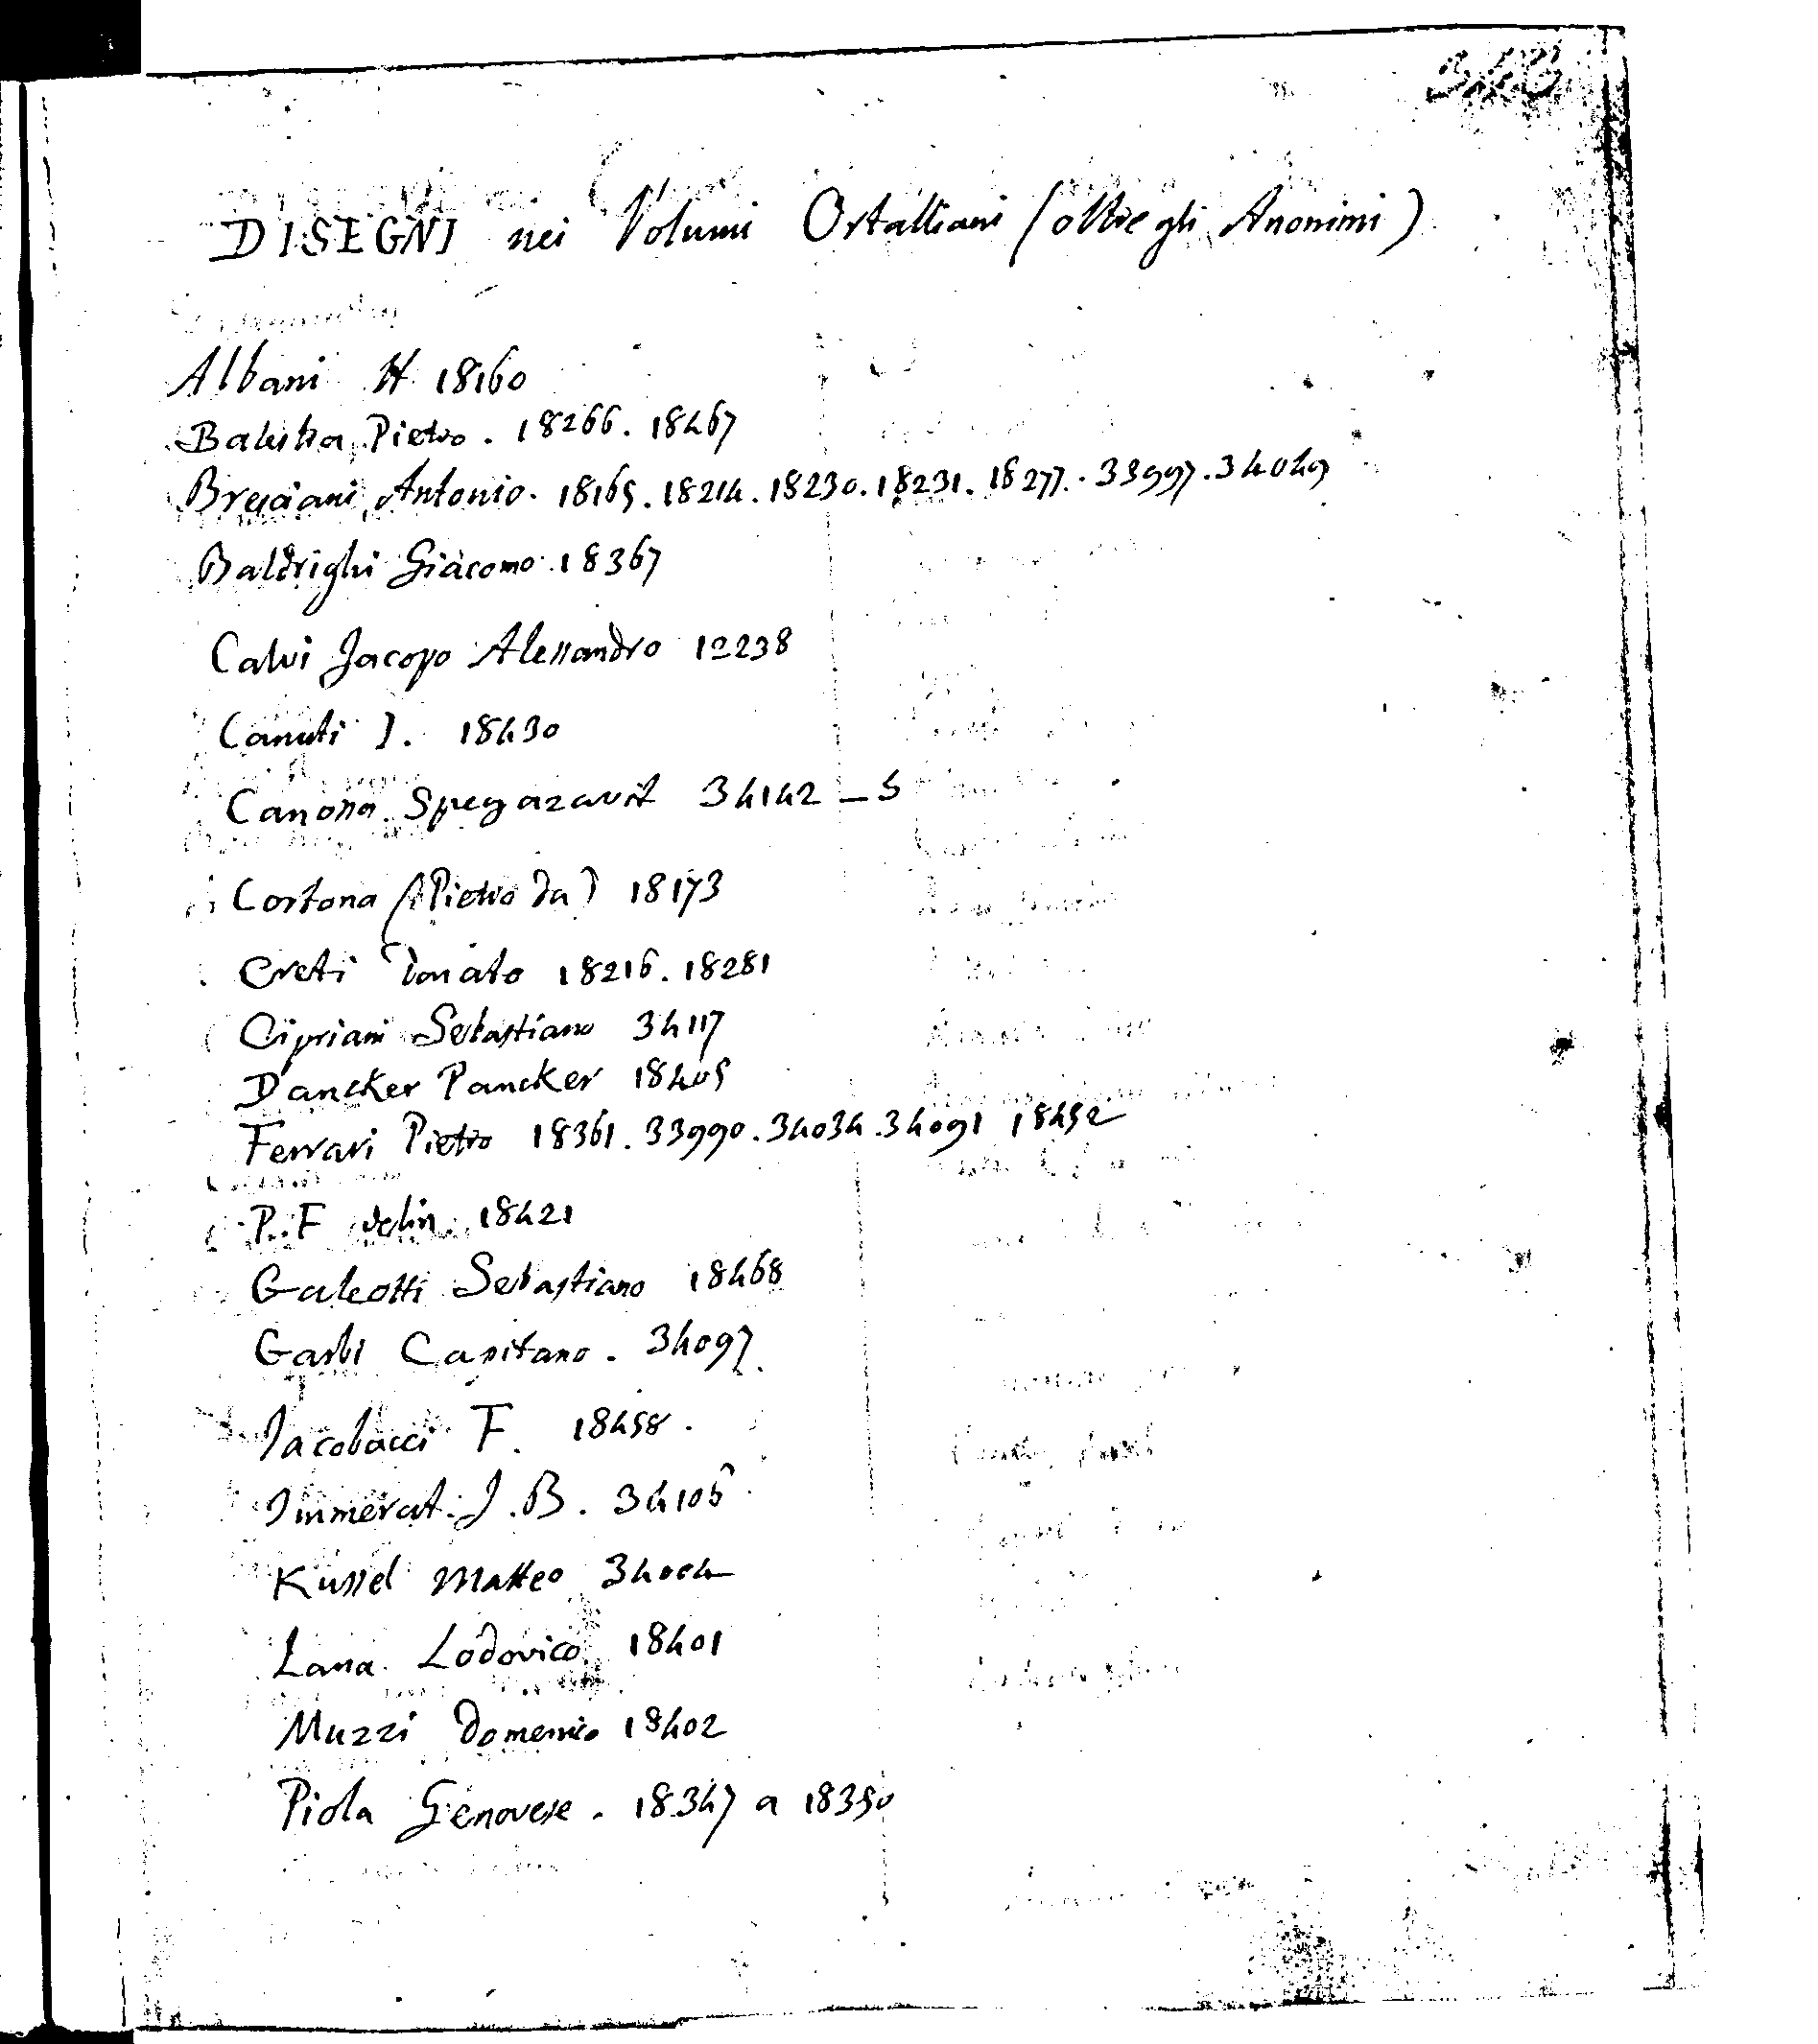 DISEGNI nei Volumi Ortalliani (oltre gli Anonimi)
Albani H 18160
Balestra Pietro. 18266. 18467
Bresciani Antonio. 18165. 18214. 18230. 18231. 18277. 33997. 34049
Baldrighi Giacomo 18367
Calvi Jacopo Alessandro 12238
Canuti J. 18430
Canossa 34142 - 5
Cortona (Pietro da) 18173
Creti Donato 18216. 18281
Cipriani Sebastiano 34117
Dancker Pancker 18405
Ferrari Pietro 18361. 33990. 34034. 34091 18452
P. F delin. 18421
Galeotti Sebastiano 18468
Garbi Capitano. 34097.
Jacobacci F. 18458.
Immerat. J. B. 34105
Kussel Matteo 34004
Lana Lodovico 18401
Muzzi Domenico 18402
Piola Genovese. 18347 a 18350